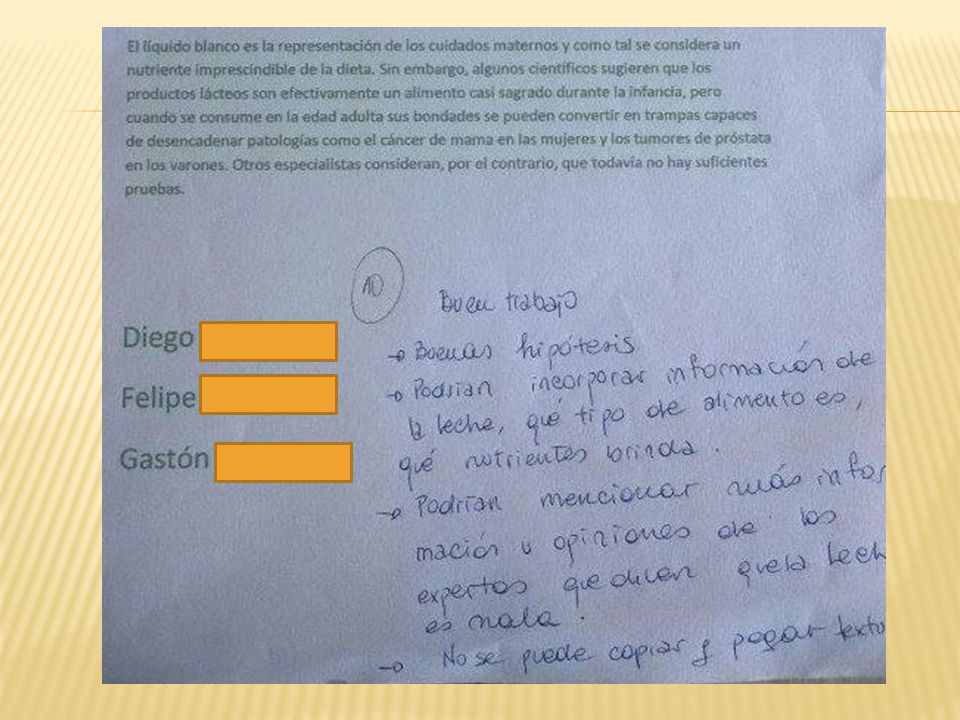 El líquido blanco es la representación de los cuidados maternos y como tal se considera un
nutriente imprescindible de la dieta. Sin embargo, algunos científicos sugieren que los
productos lácteos son efectivamente un alimento casi sagrado durante la infancia, pero
cuando se consume en la edad adulta sus bondades se pueden convertir en trampas capaces
de desencadenar patologías como el cáncer de mama en las mujeres y los tumores de próstata
en los varones. Otros especialistas consideran, por el contrario, que todavía no hay suficientes
pruebas.
10
Buen trabajo
Diego
Felipe
Gastón
→ Buenas hipótesis
→ Podrían incorporar información de
la leche, qué tipo de alimento es,
qué nutrientes brinda.
→ Podrían mencionar más infor
mación u opiniones de los
expertos que dicen que la lech
es mala.
→ No se puede copiar y pegar texto